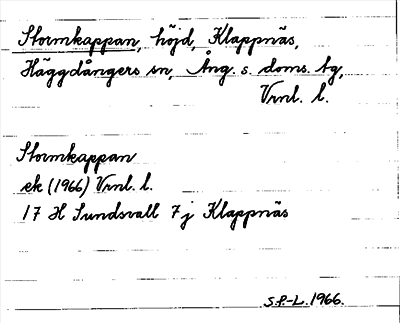 Stormkappan, höjd, Klappnäs,
Häggdångers sn, Ång. s. doms. tg,
Vrnl. l.
Stormkappan
ek (1966) Vrnl. l.
17 H Sundsvall 7 j Klappnäs
S.P.-L. 1966.